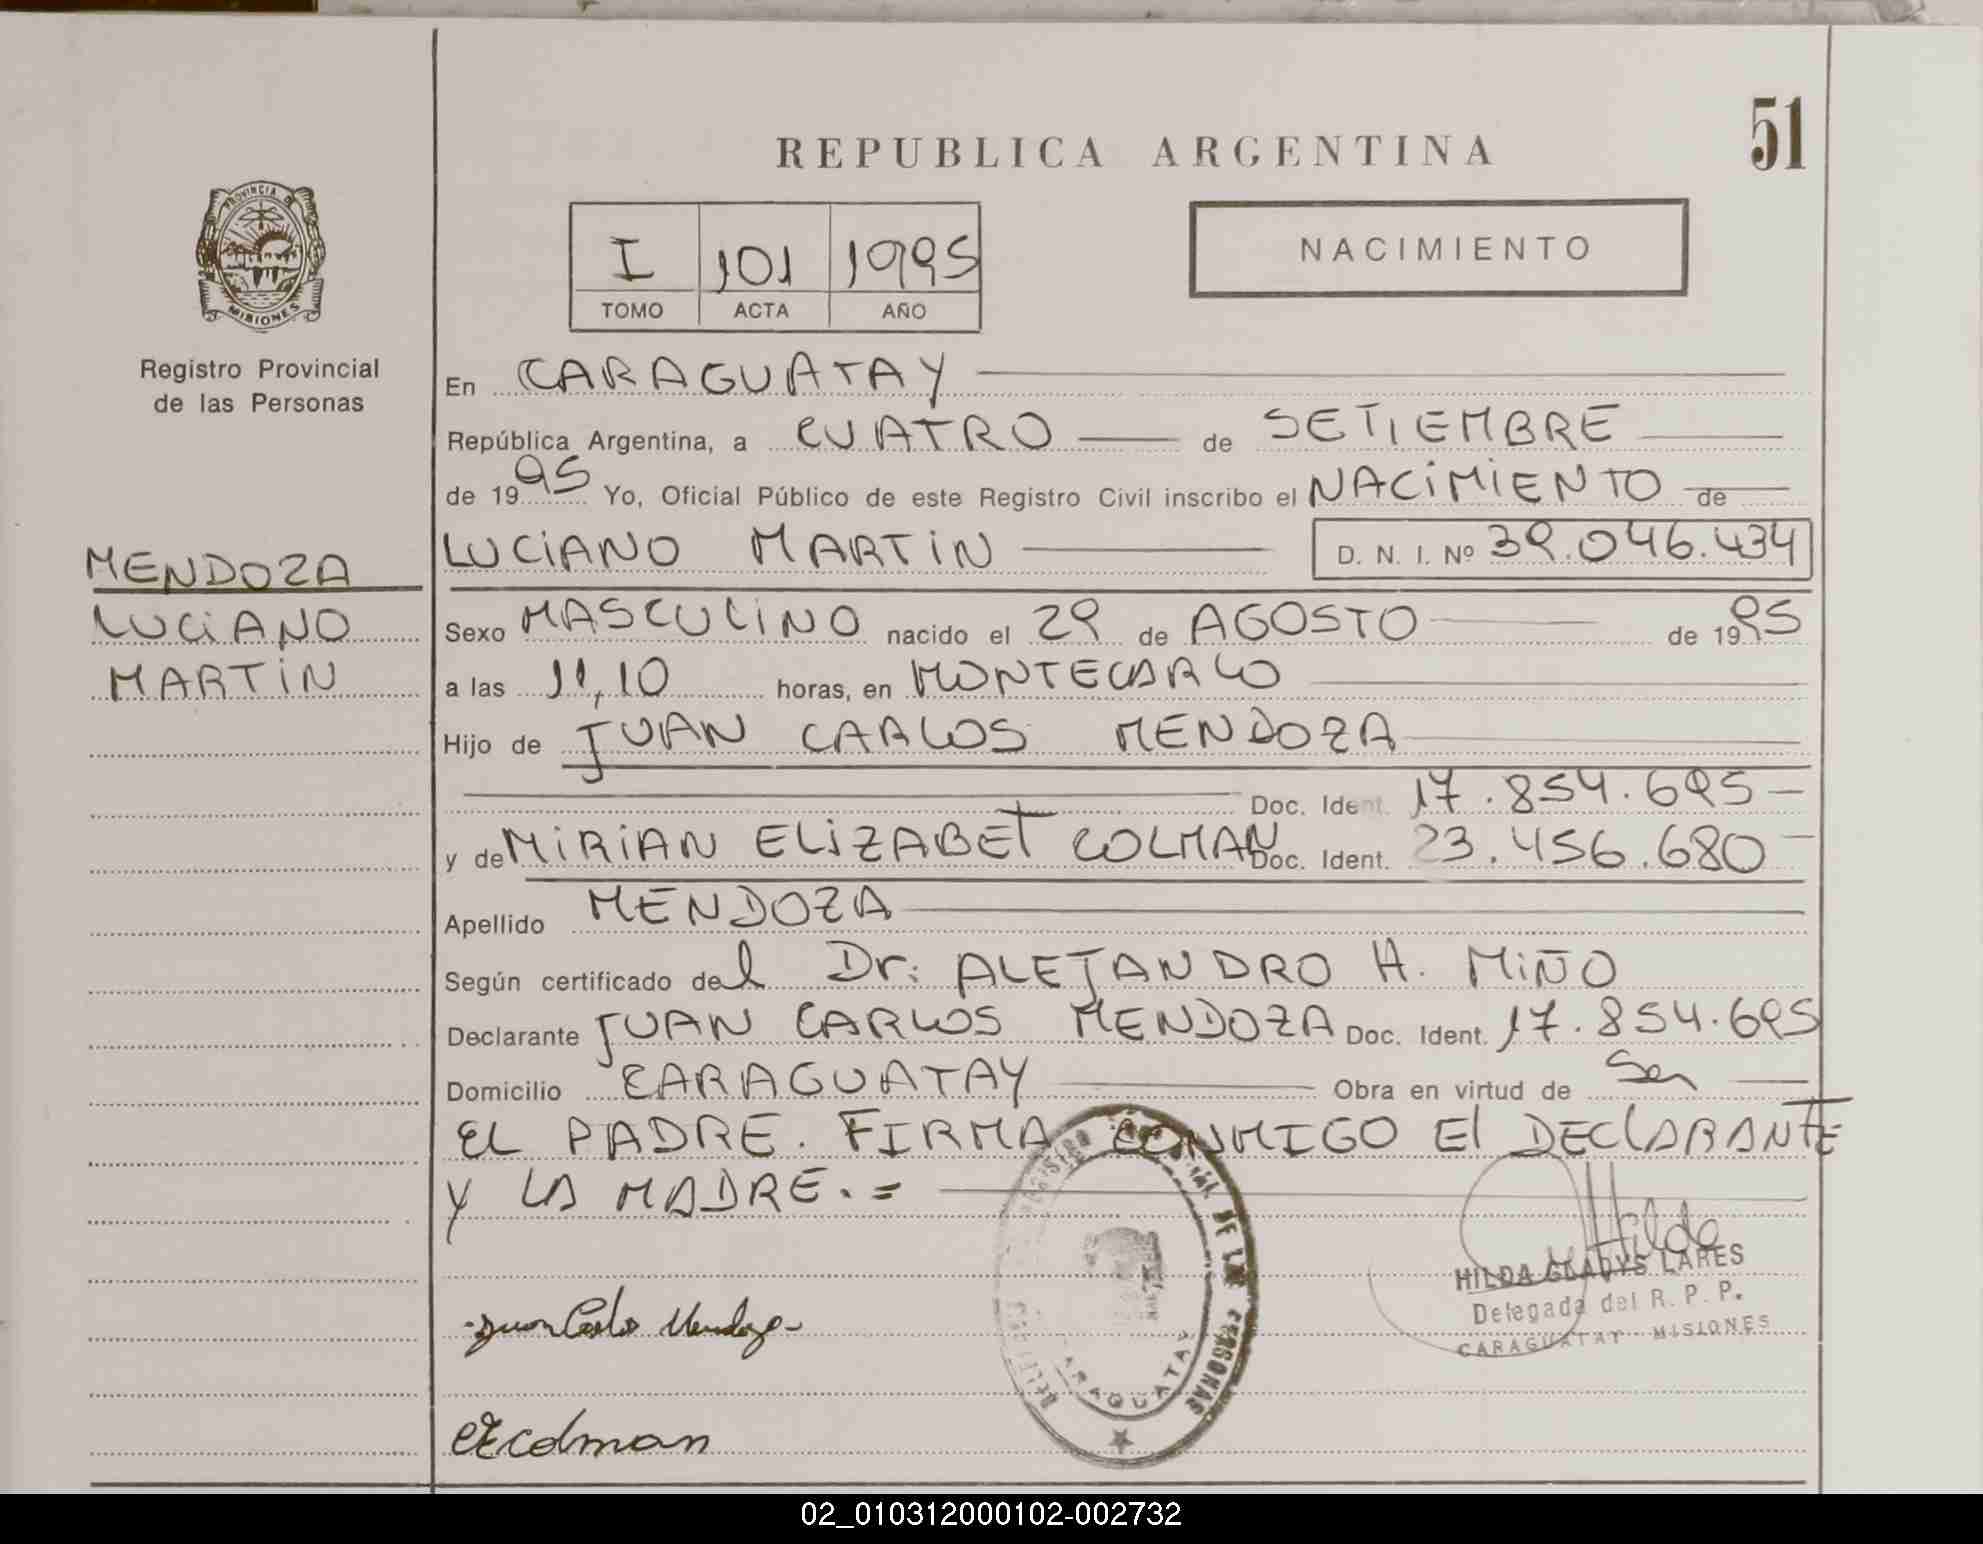 51
REPUBLICA ARGENTINA
PROVINCIA DE
MISIONES
Registro Provincial
de las Personas
I 101 1995
TOMO ACTA AÑO
NACIMIENTO
En CARAGUATAY
República Argentina, a CUATRO de SETIEMBRE
de 1995 Yo, Oficial Público de este Registro Civil inscribo el NACIMIENTO de
MENDOZA
LUCIANO
MARTIN
LUCIANO MARTIN D. N. I. Nº 39.046.434
Sexo MASCULINO nacido el 29 de AGOSTO de 1995
a las 11,10 horas, en MONTECARLO
Hijo de JUAN CARLOS MENDOZA
Doc. Ident. 17.854.695
y de MIRIAN ELIZABET COLMAN Doc. Ident. 23.456.680
Apellido MENDOZA
Según certificado del Dr: ALEJANDRO H. MIÑO
Declarante JUAN CARLOS MENDOZA Doc. Ident. 17.854.695
Domicilio CARAGUATAY Obra en virtud de Ser
EL PADRE. FIRMA CONMIGO El DEClARANTE
Y LA MADRE.=
Hilda
HILDA GLADYS LARES
Delegada del R. P. P.
CARAGUATAY - MISIONES
DE LAS PERSONAS
CARAGUATAY
Juan Carlos Mendoza
EColman
02_010312000102-002732